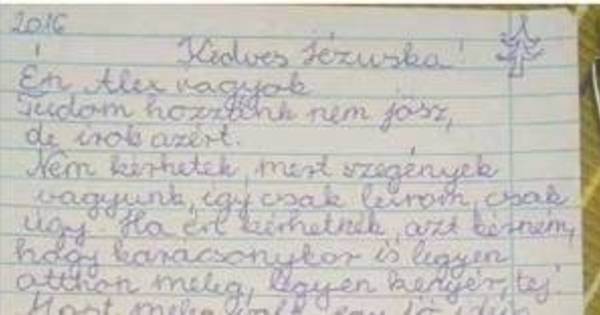 2016
Kedves Jézuska!
Én Alex vagyok
Tudom hozzánk nem jösz,
de irok azért.
Nem kérhetek, mert szegények
vagyunk, így csak leirom, csak
úgy. Ha én kérhetnék, azt kérném,
hogy karácsonykor is legyen
otthon meleg, legyen kenyér, tej.
Most meleg volt, egy jó